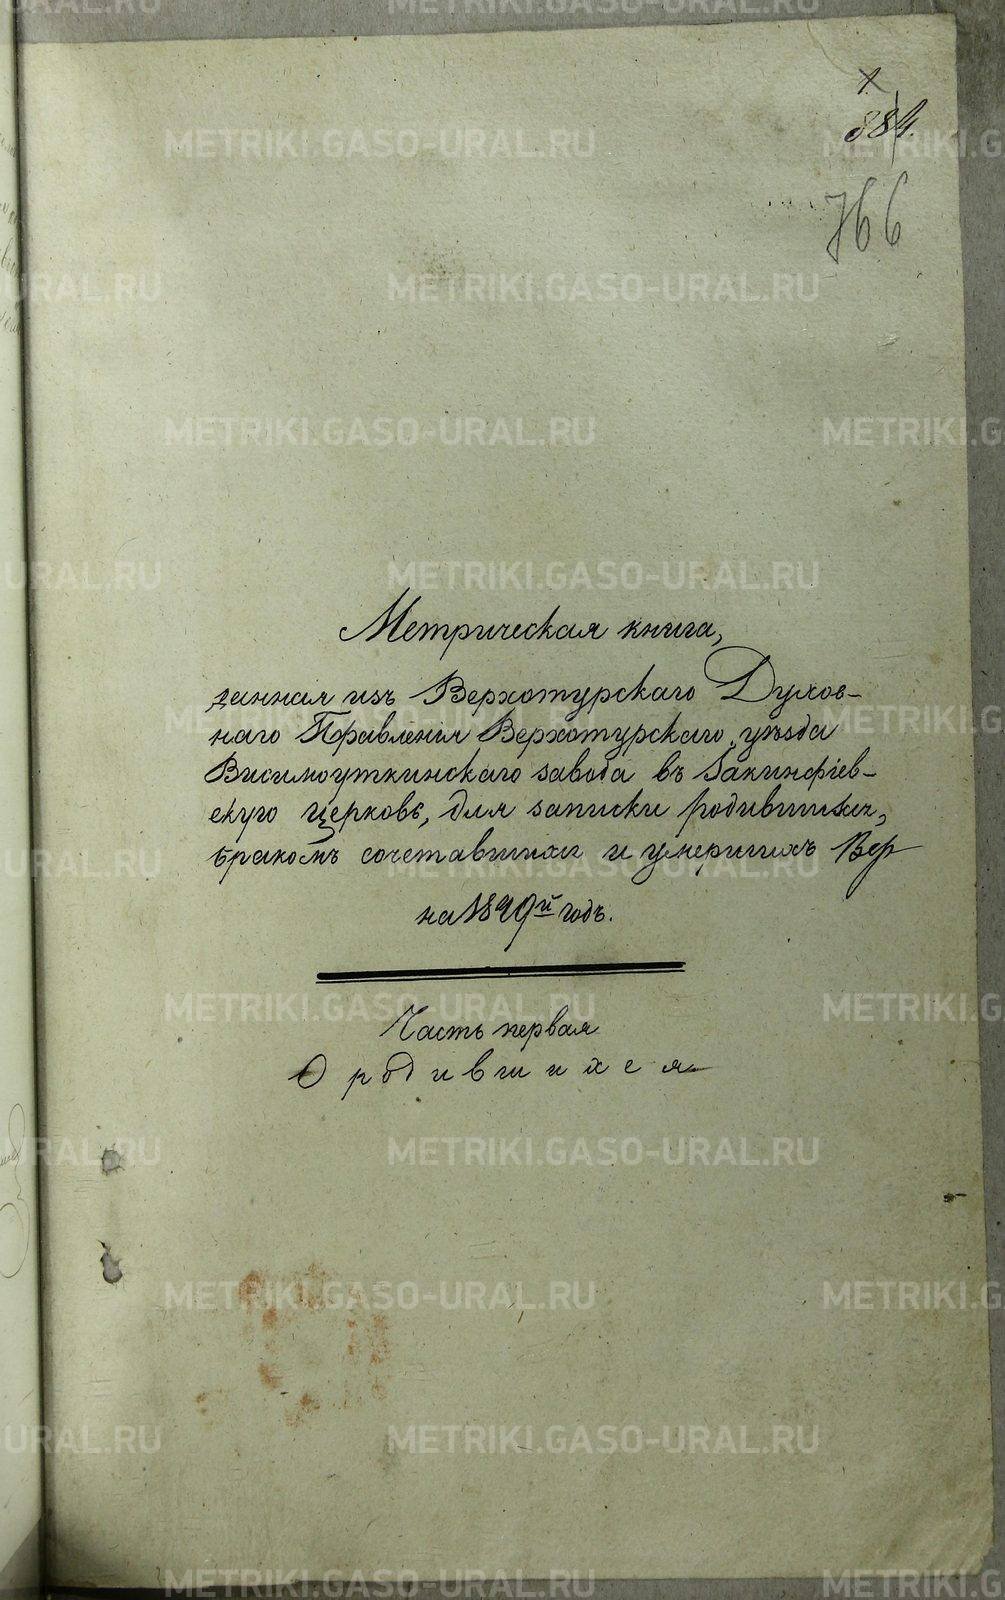 1
884.
766
Метрическая книга,
данная изъ Верхотурскаго Духов-
наго Правленія Верхотурскаго уѣзда
Висимоуткинскаго завода въ Закинфіев-
скую церковь, для записки родившихся,
бракомъ сочетавшихся и умершихъ
на 18 9й годъ.
Часть первая
О родившихся